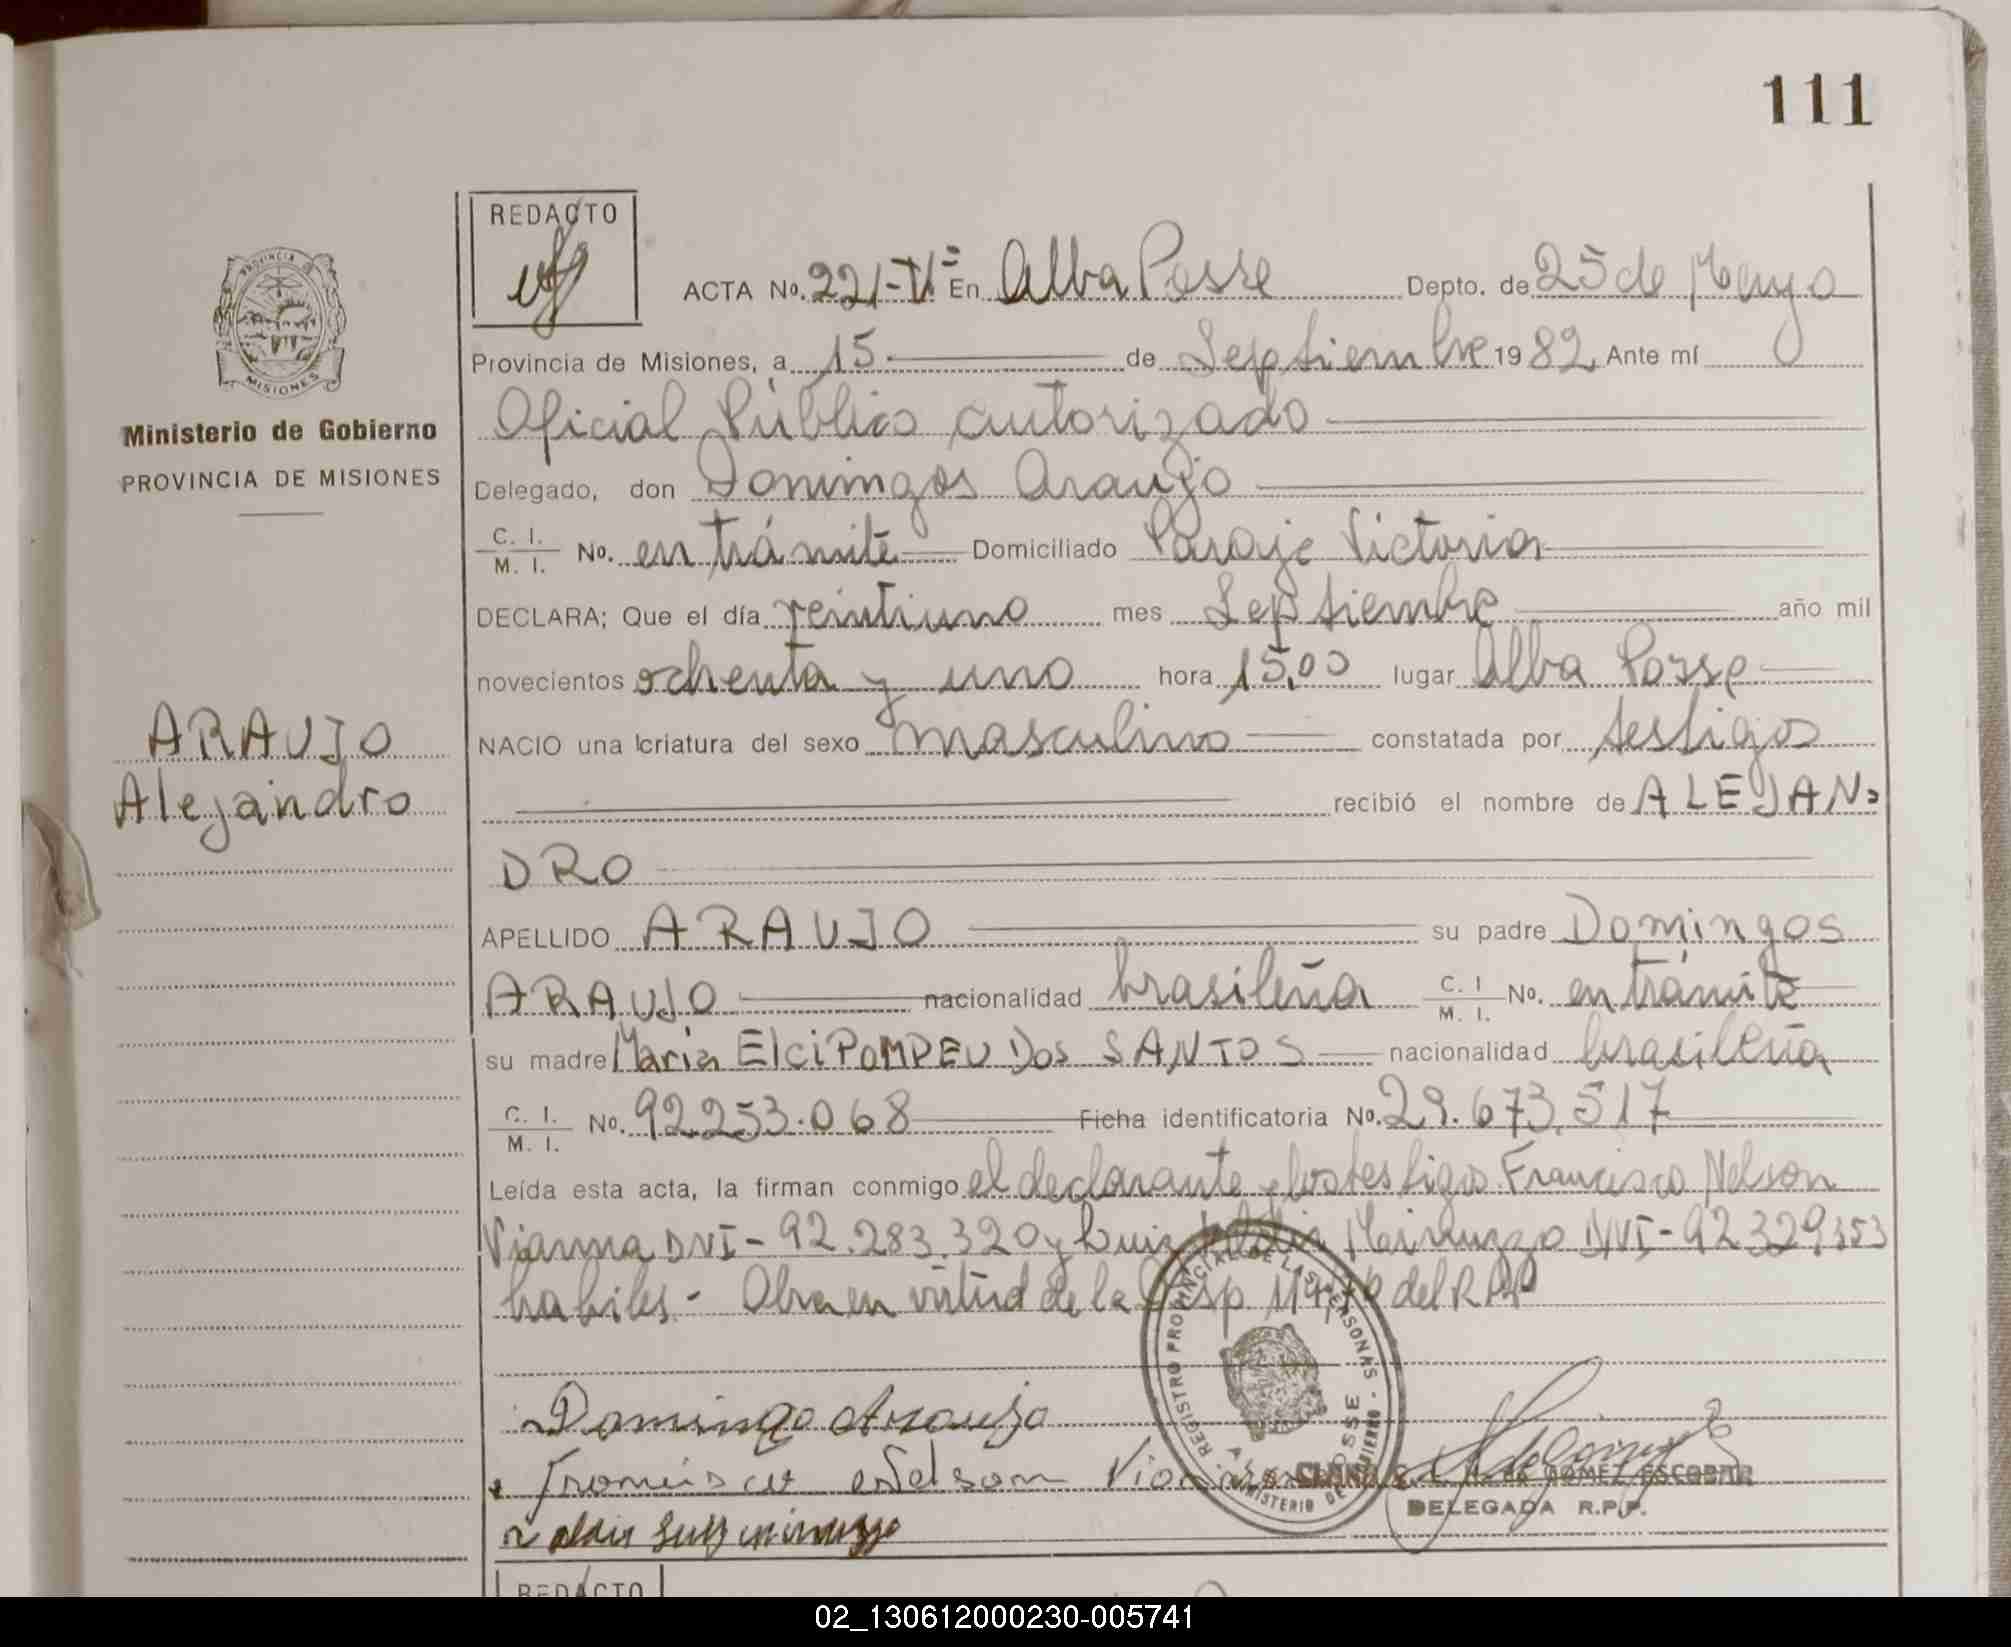 111
REDACTO
ACTA No. 221-Vº En Alba Posse Depto. de 25 de Mayo
Provincia de Misiones, a 15 de Septiembre 1982 Ante mí
Oficial Público autorizado
Delegado, don Domingos Araujo
C. I. / M. I. No. en trámite Domiciliado Paraje Victoria
DECLARA; Que el día veintiuno mes Septiembre año mil
novecientos ochenta y uno hora 15,00 lugar Alba Posse
NACIO una criatura del sexo masculino constatada por testigos
recibió el nombre de ALEJAN-
DRO
APELLIDO ARAUJO su padre Domingos
ARAUJO nacionalidad brasileña C. I / M. I. No. en trámite
su madre Maria Elci POMPEU Dos SANTOS nacionalidad brasileña
C. I. / M. I. No. 92.253.068 Ficha identificatoria No. 29.673.517
Leída esta acta, la firman conmigo el declarante y los testigos Francisco Nelson
Vianna DNI - 92.283.320 y Luiz DNI - 92329353
habiles. - Obra en virtud de la Disp. del R.P.P
Domingo Araujo
Francisco Nelson Vianna
GOMEZ ESCOBAR
DELEGADA R.P.P.
REGISTRO PROVINCIAL DE LAS PERSONAS - MINISTERIO DE GOBIERNO -
ALBA POSSE
PROVINCIA DE
MISIONES
Ministerio de Gobierno
PROVINCIA DE MISIONES
ARAUJO
Alejandro
REDACTO
02_130612000230-005741